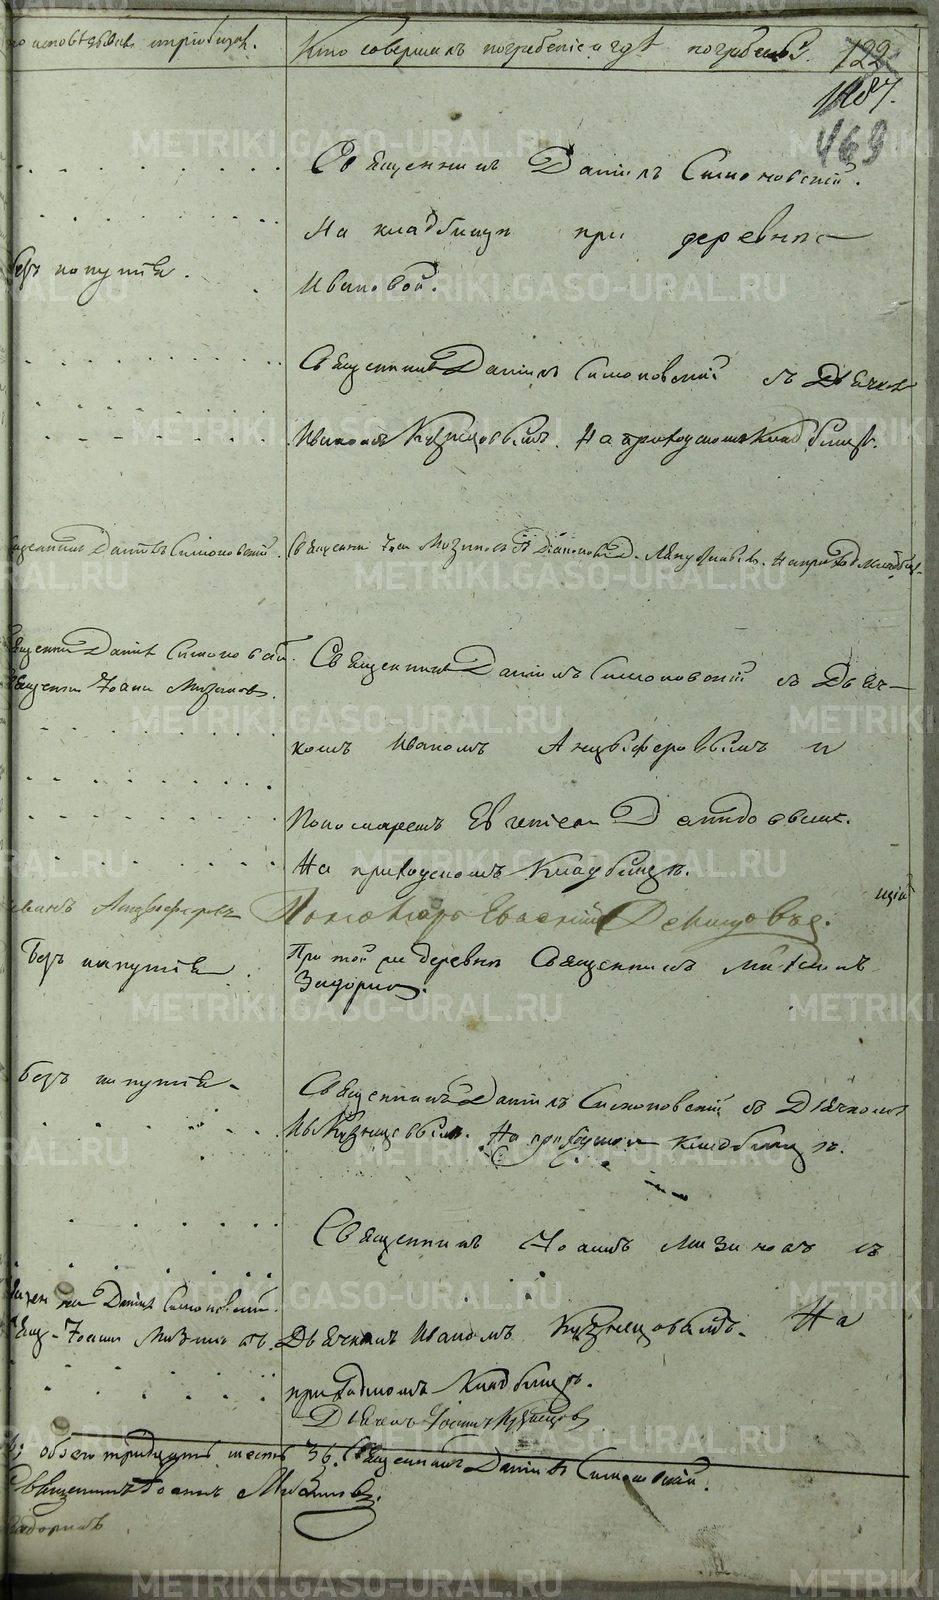 исповѣдывалъ и приобщалъ.
Кто совершалъ погребеніе и гдѣ погребены.
122
1187.
469
Священникъ Даніилъ Симоновскій.
На кладбищѣ при деревнѣ
Безъ напутія.
Ивановой.
Священникъ Даніилъ Симоновскій съ Дьячкомъ
Иваномъ Кузнецовымъ. На приходскомъ кладбищѣ.
Даніилъ Симоновскій.
Священникъ Іоаннъ Мизиновъ На приход кладбищ
Священникъ Даніилъ Симоновскій.
Священникъ Іоаннъ Мизиновъ.
Священникъ Даніилъ Симоновскій съ Дьяч-
комъ Иваномъ Анцыферовымъ и
Пономаремъ Евгеніем Демидовымъ.
На приходскомъ Кладбищѣ.
Иванъ Анцыферовъ Пономарь Евгеній Демидовъ.
щій
Безъ напутія
При той же деревнѣ Священникъ
Задоринъ.
Безъ напутія.
Священникъ Даніилъ Симоновскій съ Дьячкомъ
Ив Кузнецовымъ. На приходском кладбищѣ.
Священникъ Іоаннъ Мизиновъ съ
Священ Даніилъ Симоновскій.
Свящ. Іоаннъ Мизиновъ.
Дьячкомъ Иваномъ Кузнецовымъ. На
приходскомъ Кладбищѣ.
Дьячекъ Іоаннъ Кузнецовъ
обоего тридцать шесть 36. Священникъ Даніилъ Симоновскій.
Священникъ Іоаннъ Мизиновъ.
Задоринъ
METRIKI.GASO-URAL.RU